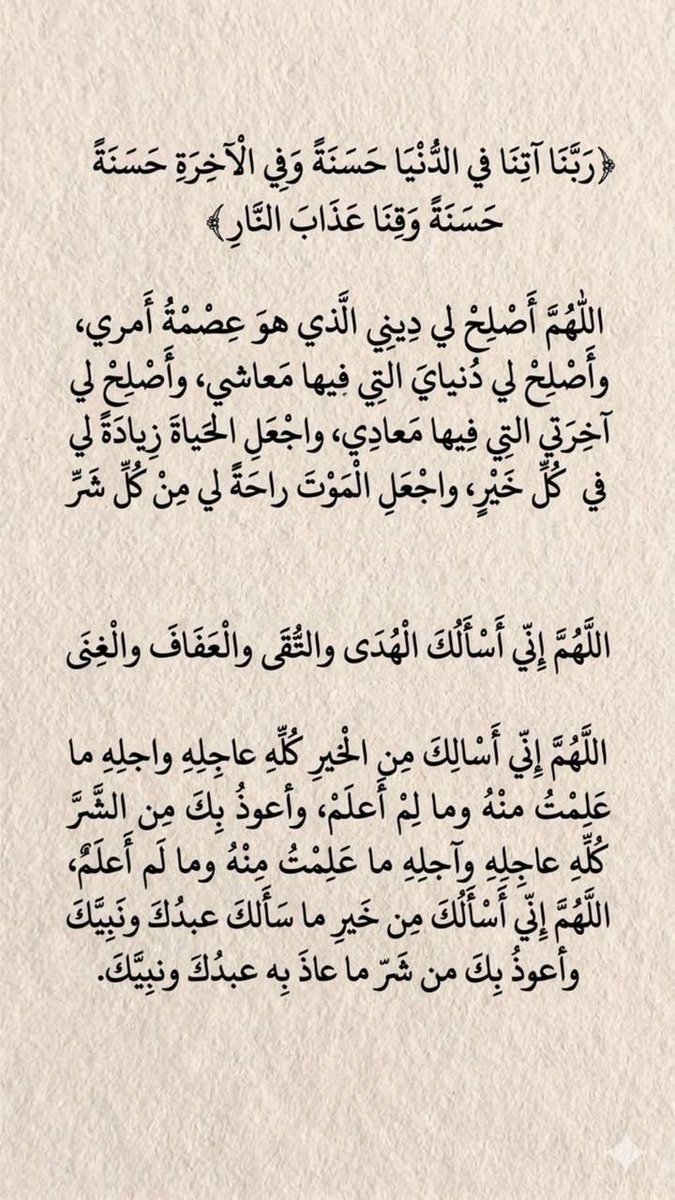 ﴿رَبَّنَا آتِنَا في الدُّنْيَا حَسَنَةً وَفِي الْآخِرَةِ حَسَنَةً
حَسَنَةً وَقِنَا عَذَابَ النَّارِ﴾
اللهُمَّ أَصْلِحْ لي دِينِي الَّذي هوَ عِصْمْةُ أَمري،
وأَصْلِحْ لي دُنيايَ التِي فِيها مَعاشي، وأَصْلِحْ لي
آخِرَتي التِي فِيها مَعادِي، واجْعَلِ الحَياةَ زِيادَةً لي
في كُلِّ خَيْرٍ، واجْعَلِ الْمَوْتَ راحَةً لي مِنْ كُلِّ شَرٍّ
اللَّهُمَّ إِنّي أَسْأَلُكَ الْهُدَى والتُّقَى والْعَفَافَ والْغِنَى
اللَّهُمَّ إِنّي أَسْالِكَ مِن الْخيرِ كُلِّهِ عاجِلِهِ واجلِهِ ما
عَلِمْتُ منْهُ وما لِمْ أَعلَمْ، وأعوذُ بِكَ مِن الشَّرَّ
كُلِّهِ عاجِلِهِ وآجلِهِ ما عَلِمْتُ مِنْهُ وما لَم أَعلَمٌ،
اللَّهُمَّ إِنّي أَسْأَلُكَ مِن خَيرِ ما سَأَلكَ عبدُكَ ونَبِيَّكَ
وأعوذُ بِكَ من شَرّ ما عاذَ بِه عبدُكَ ونبِيَّكَ.